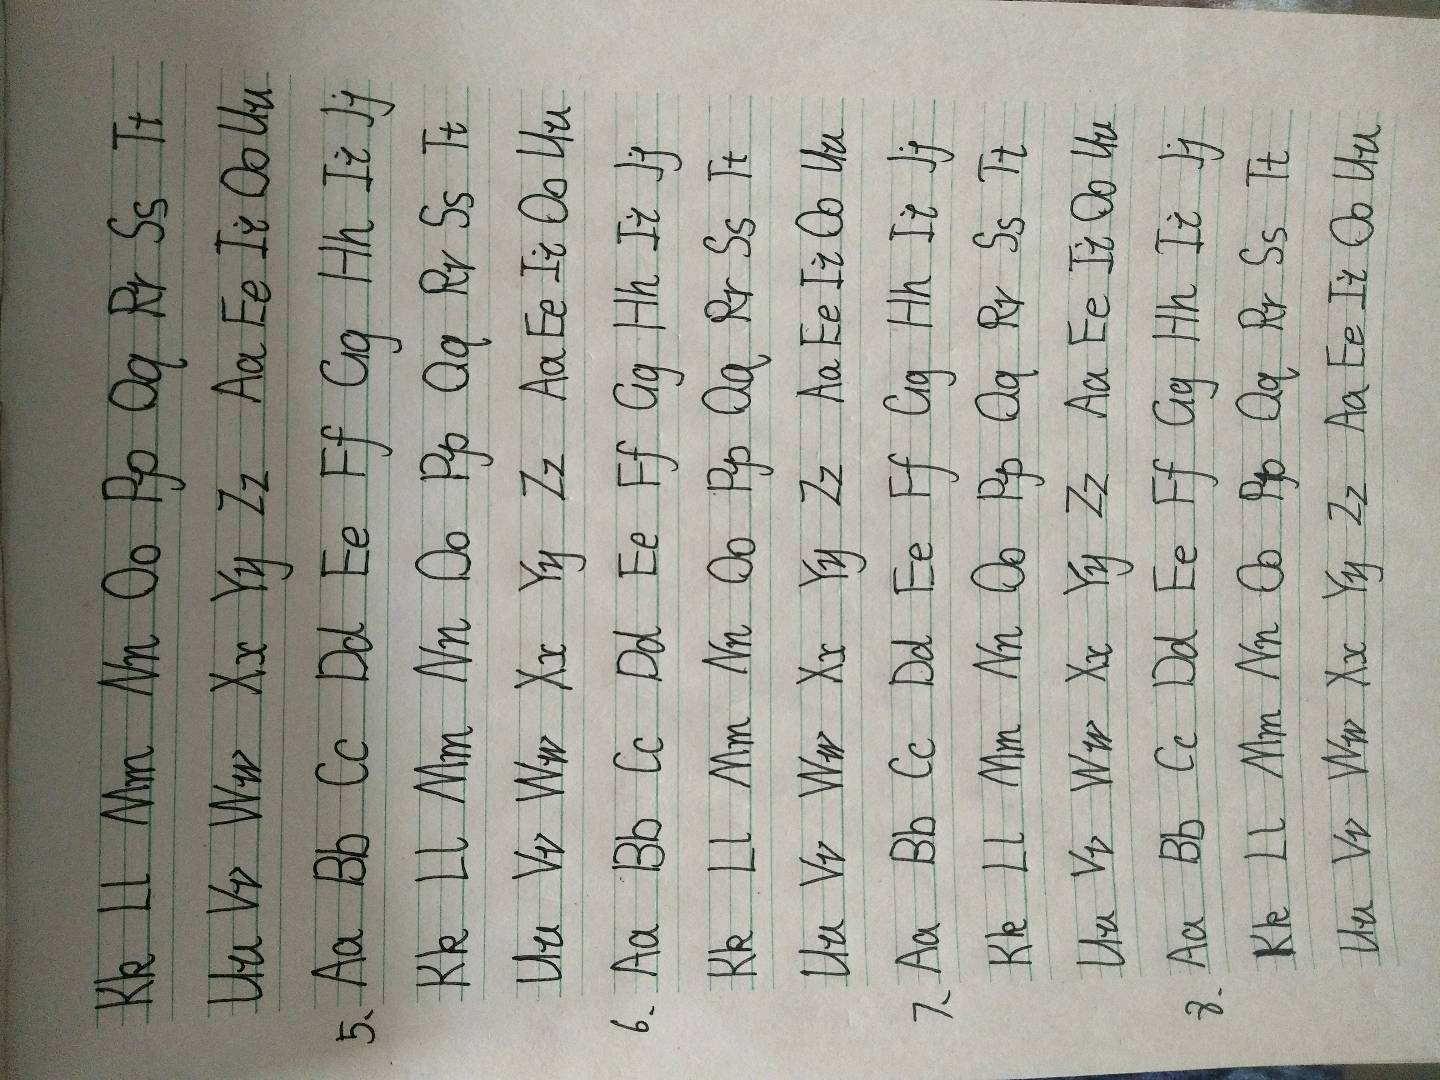 Kk Ll Mm Nn Oo Pp Qq Rr Ss Tt
Uu Vv Ww Xx Yy Zz Aa Ee Ii Oo Uu
5. Aa Bb Cc Dd Ee Ff Gg Hh Ii Jj
Kk Ll Mm Nn Oo Pp Qq Rr Ss Tt
Uu Vv Ww Xx Yy Zz Aa Ee Ii Oo Uu
6. Aa Bb Cc Dd Ee Ff Gg Hh Ii Jj
Kk Ll Mm Nn Oo Pp Qq Rr Ss Tt
Uu Vv Ww Xx Yy Zz Aa Ee Ii Oo Uu
7. Aa Bb Cc Dd Ee Ff Gg Hh Ii Jj
Kk Ll Mm Nn Oo Pp Qq Rr Ss Tt
Uu Vv Ww Xx Yy Zz Aa Ee Ii Oo Uu
8. Aa Bb Cc Dd Ee Ff Gg Hh Ii Jj
Kk Ll Mm Nn Oo Pp Qq Rr Ss Tt
Uu Vv Ww Xx Yy Zz Aa Ee Ii Oo Uu